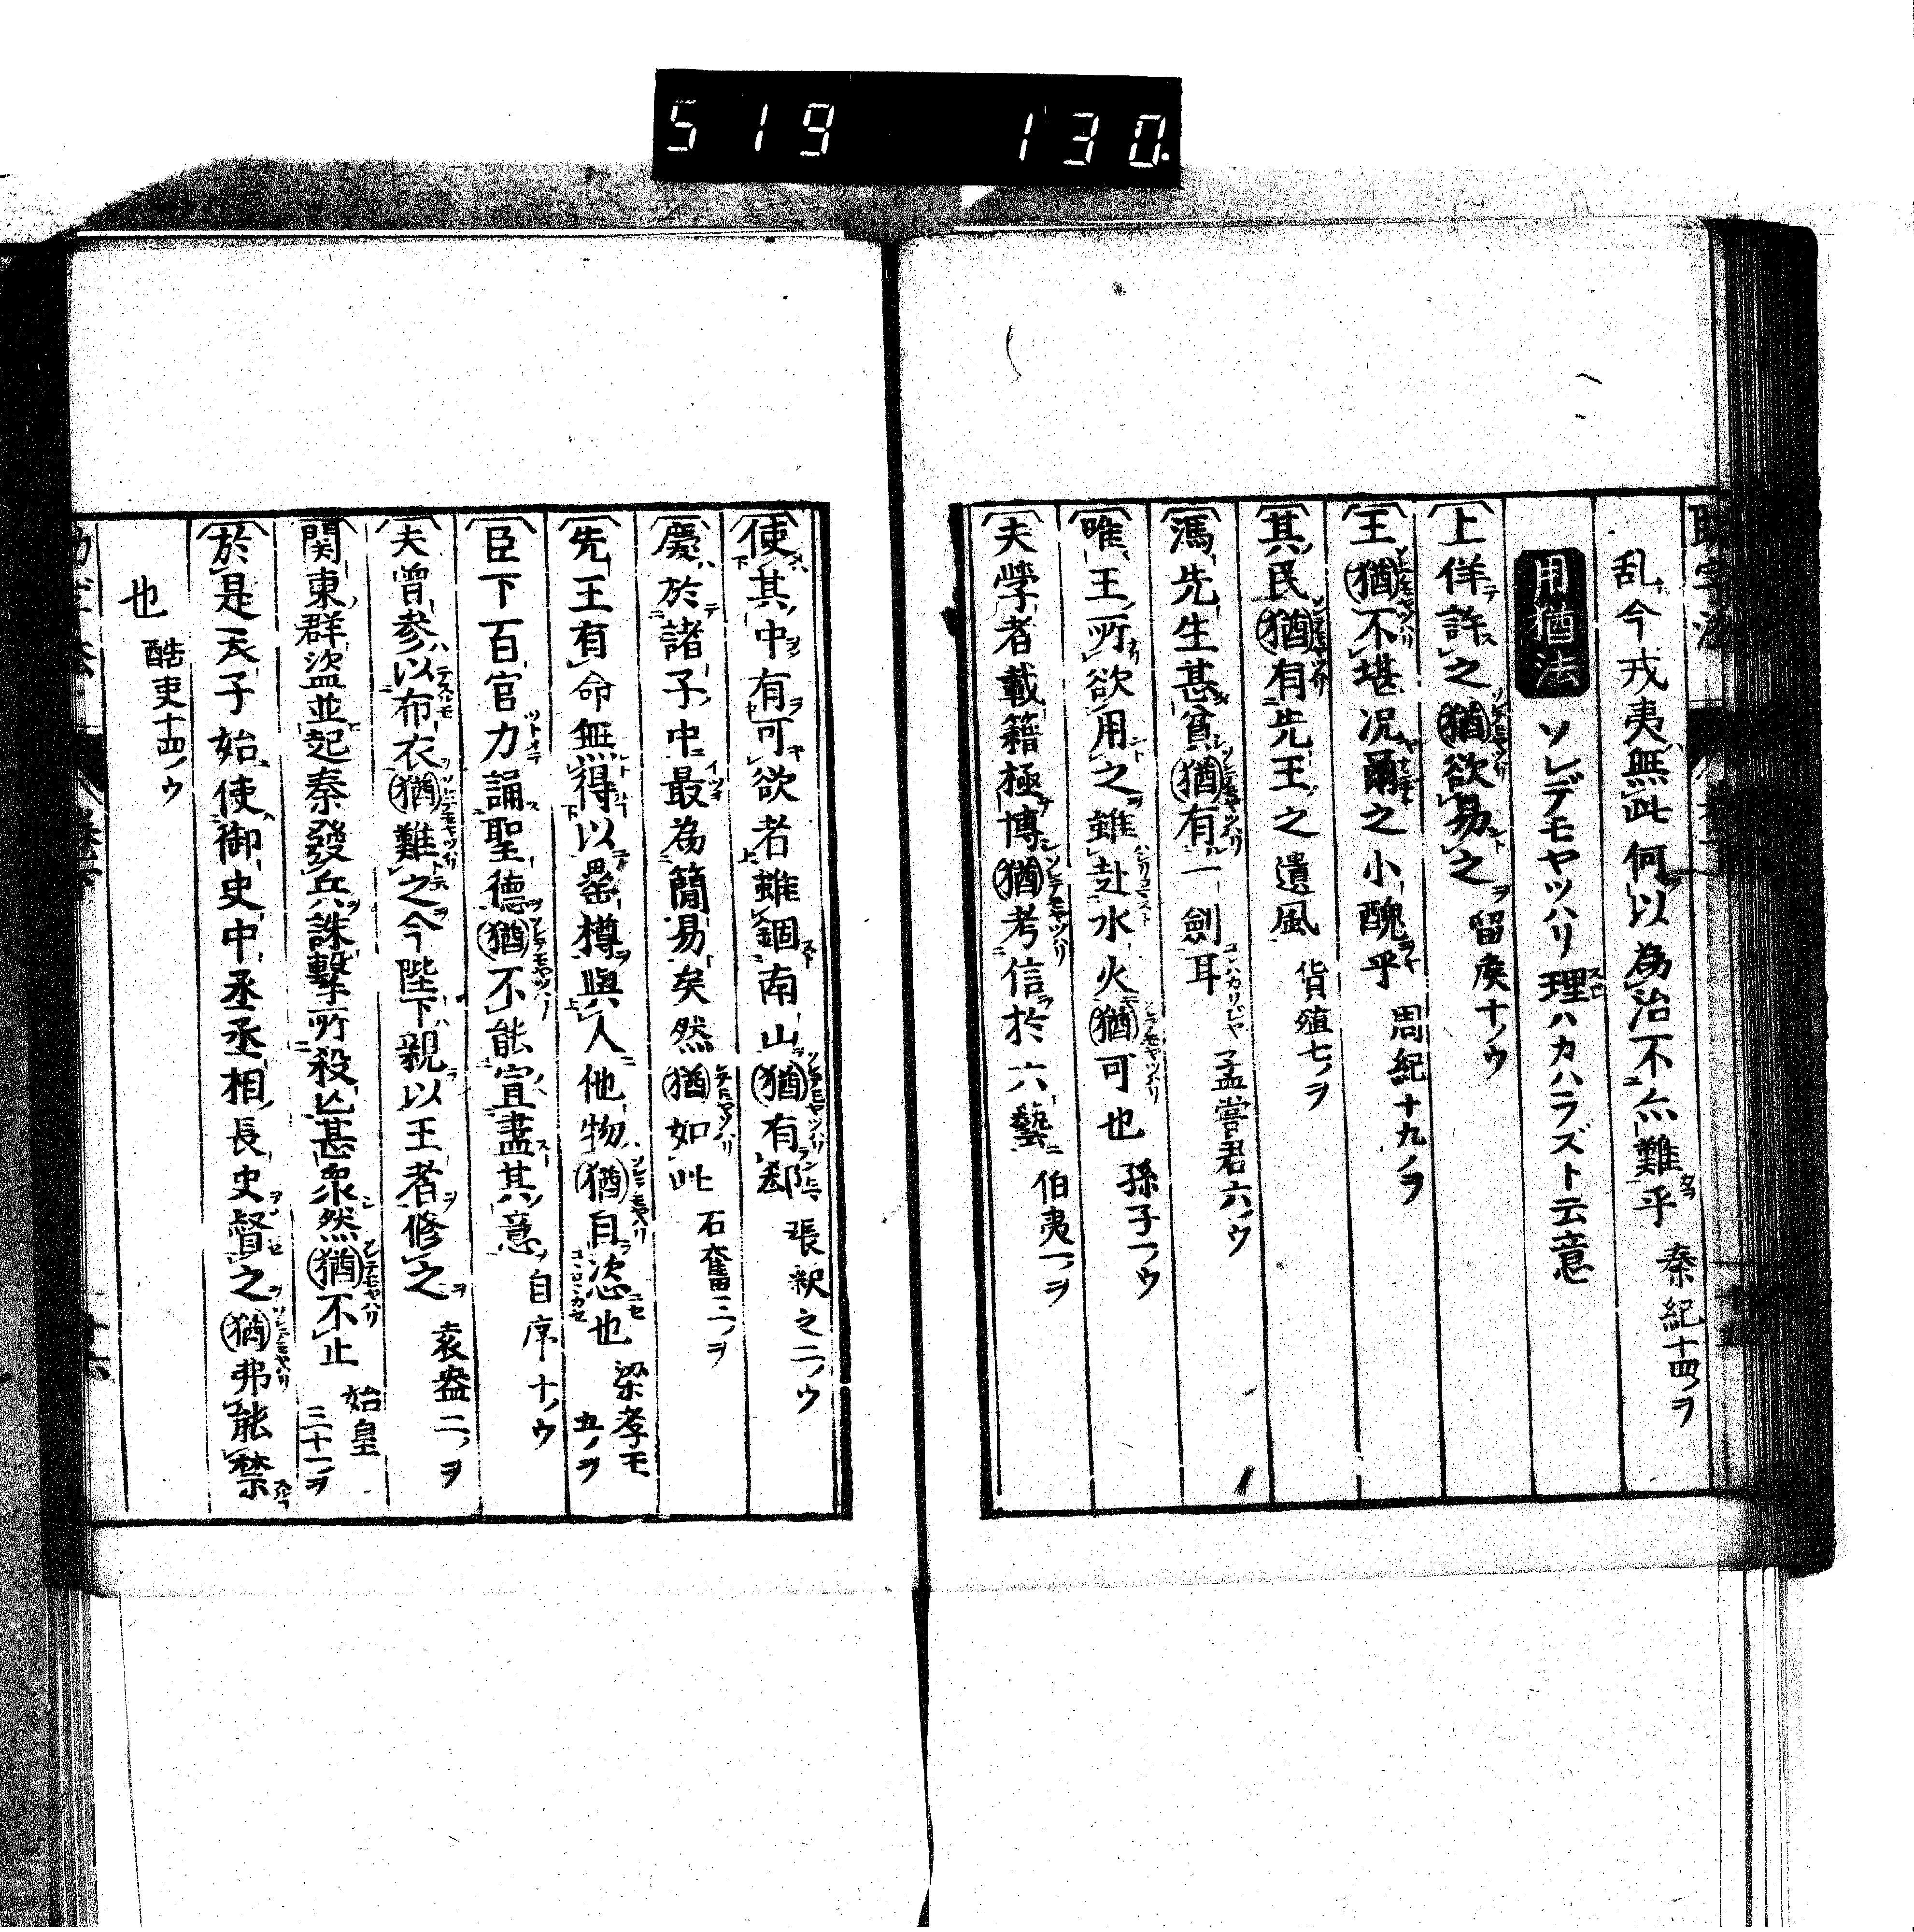 519 130
乱今戎夷無此何以為治不亦難乎 秦紀十四ノヲ
用猶法 ソレデモヤツハリ理ハカハラズト云意
上佯許之猶欲易之 留侯十ノウ
王猶不堪况爾之小醜乎 周紀十九ノヲ
其民猶有先王之遺風 貨殖七ノヲ
馮先生甚貧猶有一劍耳 孟嘗君六ノウ
唯王所欲用之雖赴水火猶可也 孫子一ノウ
夫學者載籍極博猶考信於六藝 伯夷一ノヲ
使其中有可欲者雖錮南山猶有郄 張釈之二ノウ
慶於諸子中最為簡易矣然猶如此 石奮三ノヲ
先王有命無得以罍樽與人他物猶自恣也 梁孝王五ノヲ
臣下百官力誦聖德猶不能宣盡其意 自序十ノウ
夫曾參以布衣猶難之今陛下親以王者修之 袁盎二ノヲ
関東群盜並起秦發兵誅擊所殺亾甚眾然猶不止 始皇三十一ノヲ
於是天子始使御史中丞丞相長史督之猶弗能禁
也 酷吏十四ノウ